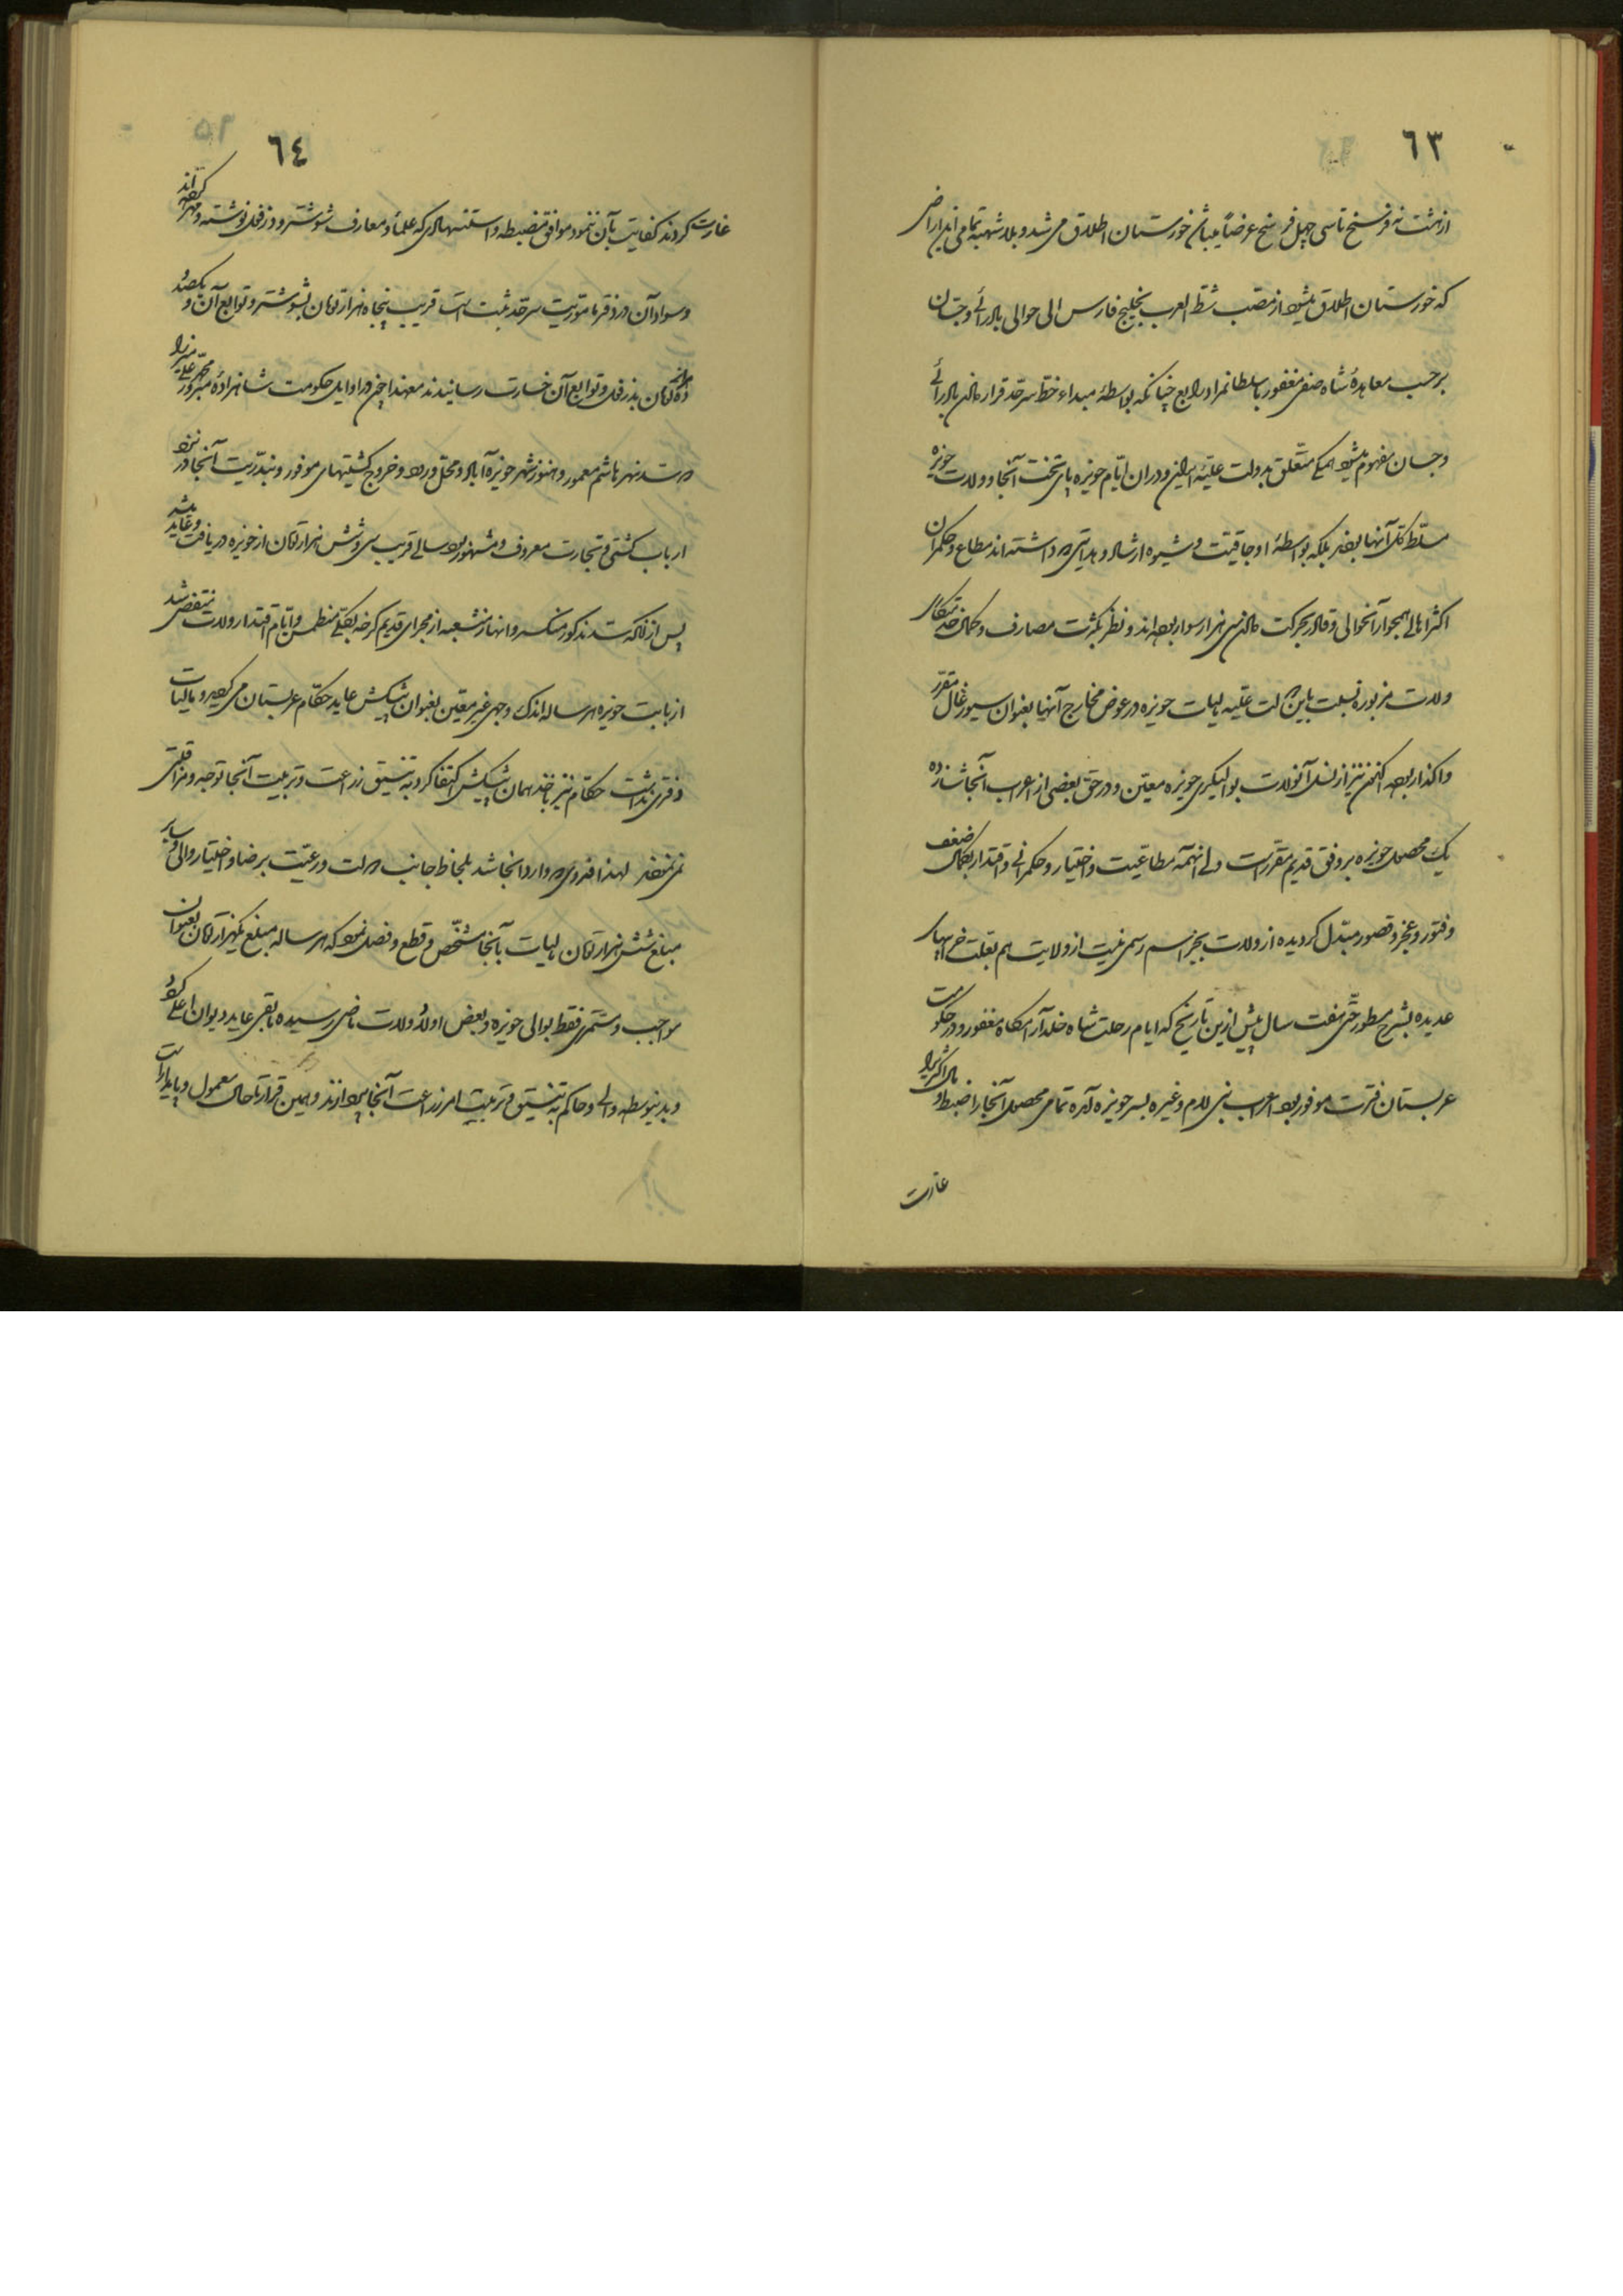 ٦٣
از هشت نه فرسخ تا سی چهل فرسخ عرضاً میباشد خوزستان اطلاق می شد و بلا شبهه تمامی این اراضی
که خوزستان اطلاق میشود از مصب شط العرب بخلیج فارس الی حوالی بادرائی و جسان
بر حسب معاهدهٔ شاه صفی مغفور با سلطانمراد رابع چنانکه بواسطهٔ مبداء خط سرحد قرار دادن بادرائی
و جسان مفهوم میشود همگی متعلق بدولت علیّه ایران و در آن ایّام حویزه پای تخت آنجا و ولات حویزه
مسلّط کل آنها بودند بلکه بواسطهٔ اوجاقیّت و شیوه ارشاد و هدایتی که داشته‌اند مطاع و حکمران
اکثر اهالی همجوار آنحوالی و قادر بحرکت دادن سی هزار سوار بوده‌اند و نظر بکثرت مصارف و کمال خدمتکاری
ولات مزبوره نسبت باین دولت علّیه مالیات حویزه در عوض مخارج آنها بعنوان سیورغال مقرّر
واکذار بوده اکنون نیز از نسل آنولات بوالیکری حویزه معیّن و در حق بعضی از اعراب آنجا شانزده
یک محصول حویزه بر وفق قدیم مقرر است ولی آنهمه مطاعیّت و اختیار و حکمرانی و اقتدار بکمال ضعف
و فتور و عجز و قصور مبدّل کردیده از ولات بجز اسم رسمی نیست از ولایت هم بعلت خرابیهای
عدیده بشرح مسطور حتّی هفت سال پیش ازین تاریخ که ایام رحلت شاه خلد آرامکاه مغفور و در حکومت
عربستان فترت موفور بود اعراب بنی لام و غیره بسر حویزه آمده تمامی محصول آنجا را ضبط و مال اکثری را
غارت
٦٤
غارت کردند کفایت بآن ننمود موافق مضبطه و استشهادی که علما و معارف شوشتر و دزفول نوشته و مهر کرده‌اند
و سواد آن در دفتر ماموریت سرحد ثبت است قریب پنجاه هزار تومان بشوشتر و توابع آن و یکصد و
ده هزار تومان بدزفول و توابع آن خسارت رسانیدند معهذا چون در اوایل حکومت شاهزاده مبرور محمّد علی میرزا
که سد نهر هاشم معمور و هنوز شهر حویزه آباد و محل ورود و خروج کشتیهای موفور و بندرّیت آنجا در نزد
ارباب کشتی و تجارت معروف و مشهور بود سالی قریب سی و شش هزار تومان از حویزه دریافت و عاید میشد
پس از آنکه سد مذکور منکسر و انهار منشعبه از مجرای قدیم کرخه بکلّی منطمس و ایّام اقتدار ولات منقضی شد
از بابت حویزه هر ساله اندک وجهی غیر معیّن بعنوان پیشکش عاید حکّام عربستان می کردید و مالیات
دفتری نداشت حکّام نیز باخذ همان پیشکش اکتفا کرده به تنسیق زراعت و تربیت آنجا توجه و مراقبتی
نمی‌نمودند لهذا فدوی که وارد آنجا شد بلحاظ جانب دولت و رعیّت برضا و اختیار والی و سایر
مبلغ شش هزار تومان مالیات بآنجا مشخّص و قطع و فصل نمود که هر ساله مبلغ یکهزار تومان بعنوان
مواجب و مستمری فقط بوالی حویزه و بعض اولاد ولات ماضی رسیده مابقی عاید دیوان اعلی کردد
و بدینواسطه والی و حاکم به تنسیق و تربیت امر زراعت آنجا پردازند و همین قرار تا حال معمول و پایدار است